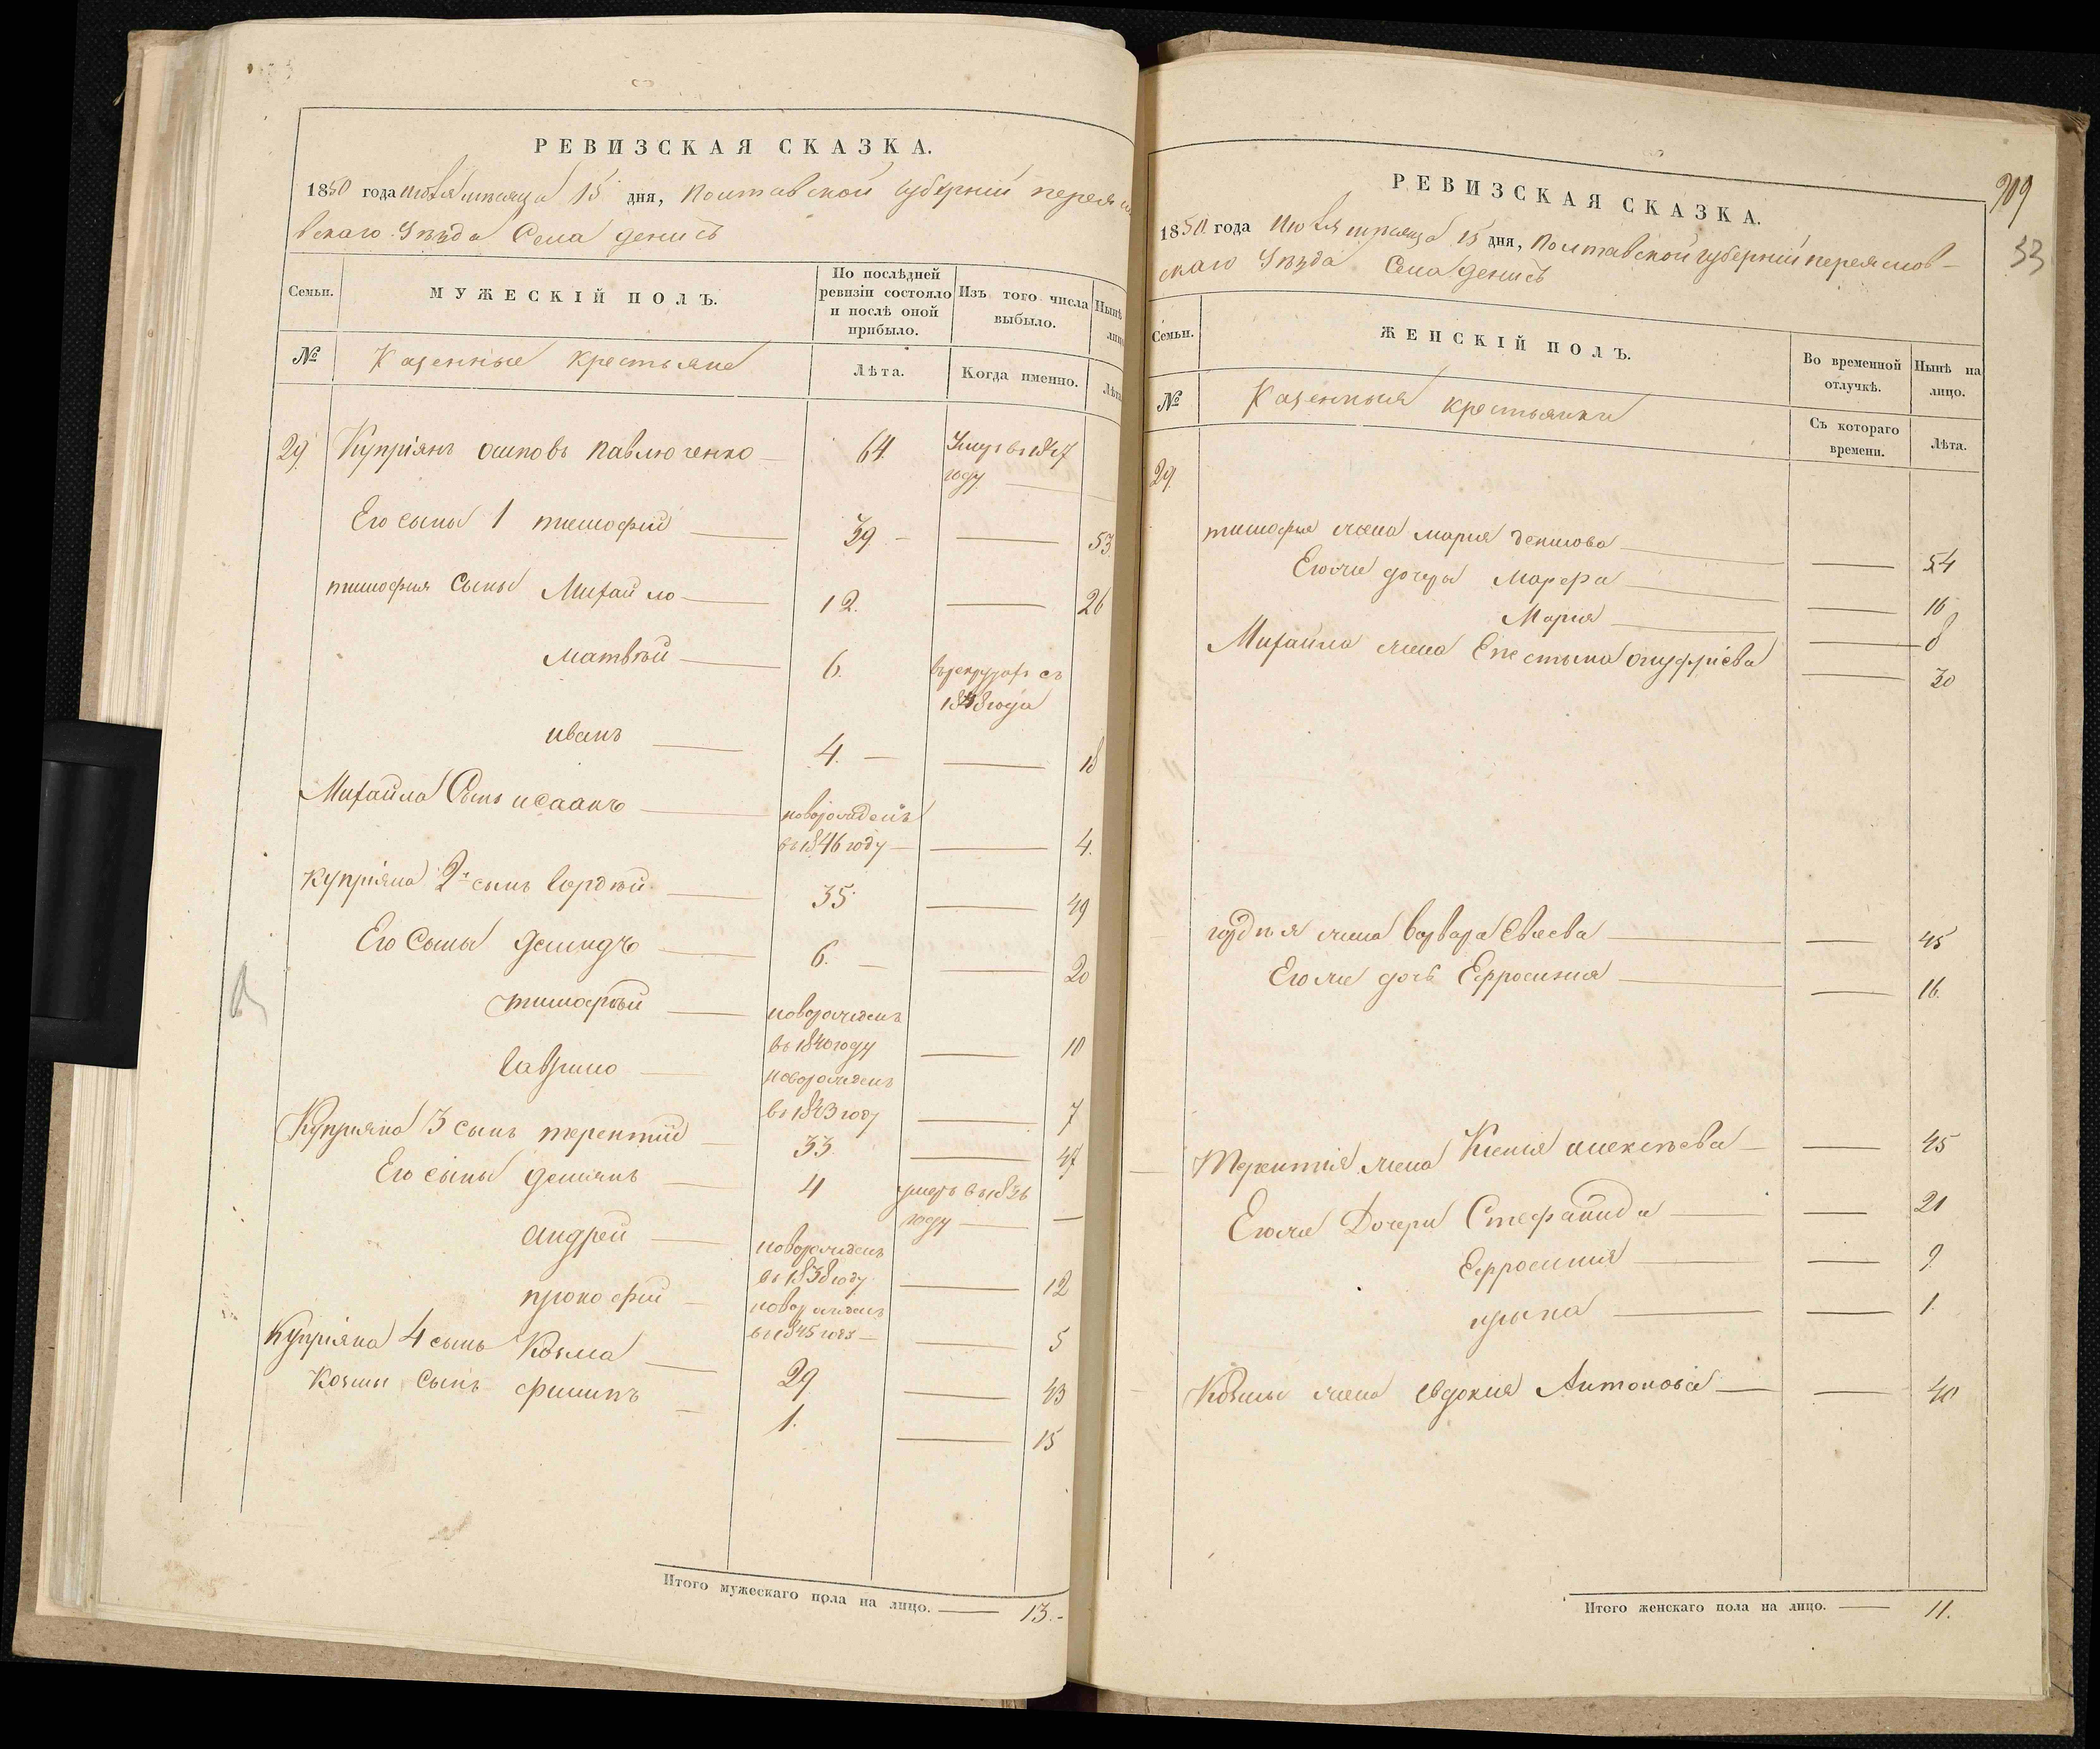 РЕВИЗСКАЯ СКАЗКА.
1850 года июля мѣсяца 15 дня, Полтавской губерніи переясла
вскаго Уѣзда Села денисъ
Семьи.
МУЖЕСКІЙ ПОЛЪ.
По послѣдней ревизіи состояло и послѣ оной прибыло.
Изъ того числа выбыло.
Нынѣ
лиц
№
Казенные крестьяне
Лѣта.
Когда именно.
Лѣта
29 Купріянъ осиповъ павлюченко 64. Умеръ въ 1847
году
Его сыны 1 тимофій 39 53
тимофія Сыны Михайло 12. 26
матвѣй 6. въ рекрутахъ съ
1848 года
иванъ 4. 18
Михайла Сынъ исаакъ новорожденъ
въ 1846 году 4.
купріяна 2й сынъ гордѣй 35 49
Его Сыны демидъ 6. 20
тимофѣй новорожденъ
въ 1840 году 10
гаврило новорожденъ
въ 1843 году 7
Купріяна 3 сынъ терентій 33 47
Его сыны демянъ 4 умеръ въ 1836
году
андрей новорожденъ
въ 1838 году 12
прокофій новорожденъ
въ 1845 году 5
Купріяна 4 сынъ Козма 29 43
Козмы Сынъ филипъ 1. 15
Итого мужескаго пола на лицо. 13.
209
33
РЕВИЗСКАЯ СКАЗКА.
1850 года Июля мѣсяца 15 дня, Полтавской губерніи переяслов-
скаго Уѣзда Села денисъ
Семьи.
ЖЕНСКІЙ ПОЛЪ.
Во временной отлучкѣ.
Нынѣ на лицо.
№
Казенныя крестьянки
Съ котораго времени.
Лѣта.
29.
тимофія жена марія денисова 54
Его же дочеры Марфа 16
Марія 8
Михайла жена Епестима онуфріева 30
гордѣя жена варвара Евсеева 45
Его же дочь Ефросинія 16.
Терентія жена Ксенія алексѣева 45
Его же Дочери Стефанида 21
Ефросинія 9
ирина 1.
Козмы жена евдокія Антонова 40
Итого женскаго пола на лицо. 11.